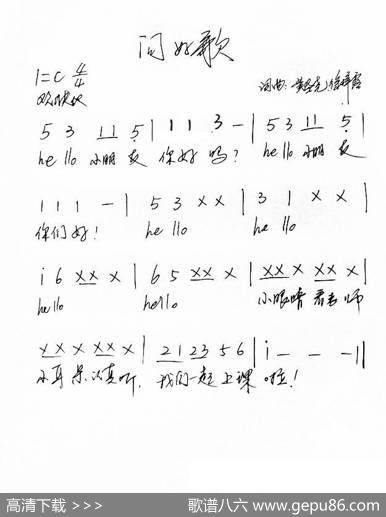 问好歌
1=C 4/4
欢快地
词曲:
5 3 11 5 | 1 1 3 - | 5 3 11 5 |
hello 小朋友 你好吗? hello 小朋友
1 1 1 - | 5 3 x x | 3 1 x x |
你们好! hello hello
i 6 xx x | 6 5 xx x | xx x xx x |
hello hello 小眼睛 看老师
xx x xx x | 21 23 5 6 | i - - - ||
小耳朵认真听, 我们一起上课啦!
高清下载 >>> 歌谱八六 www.gepu86.com